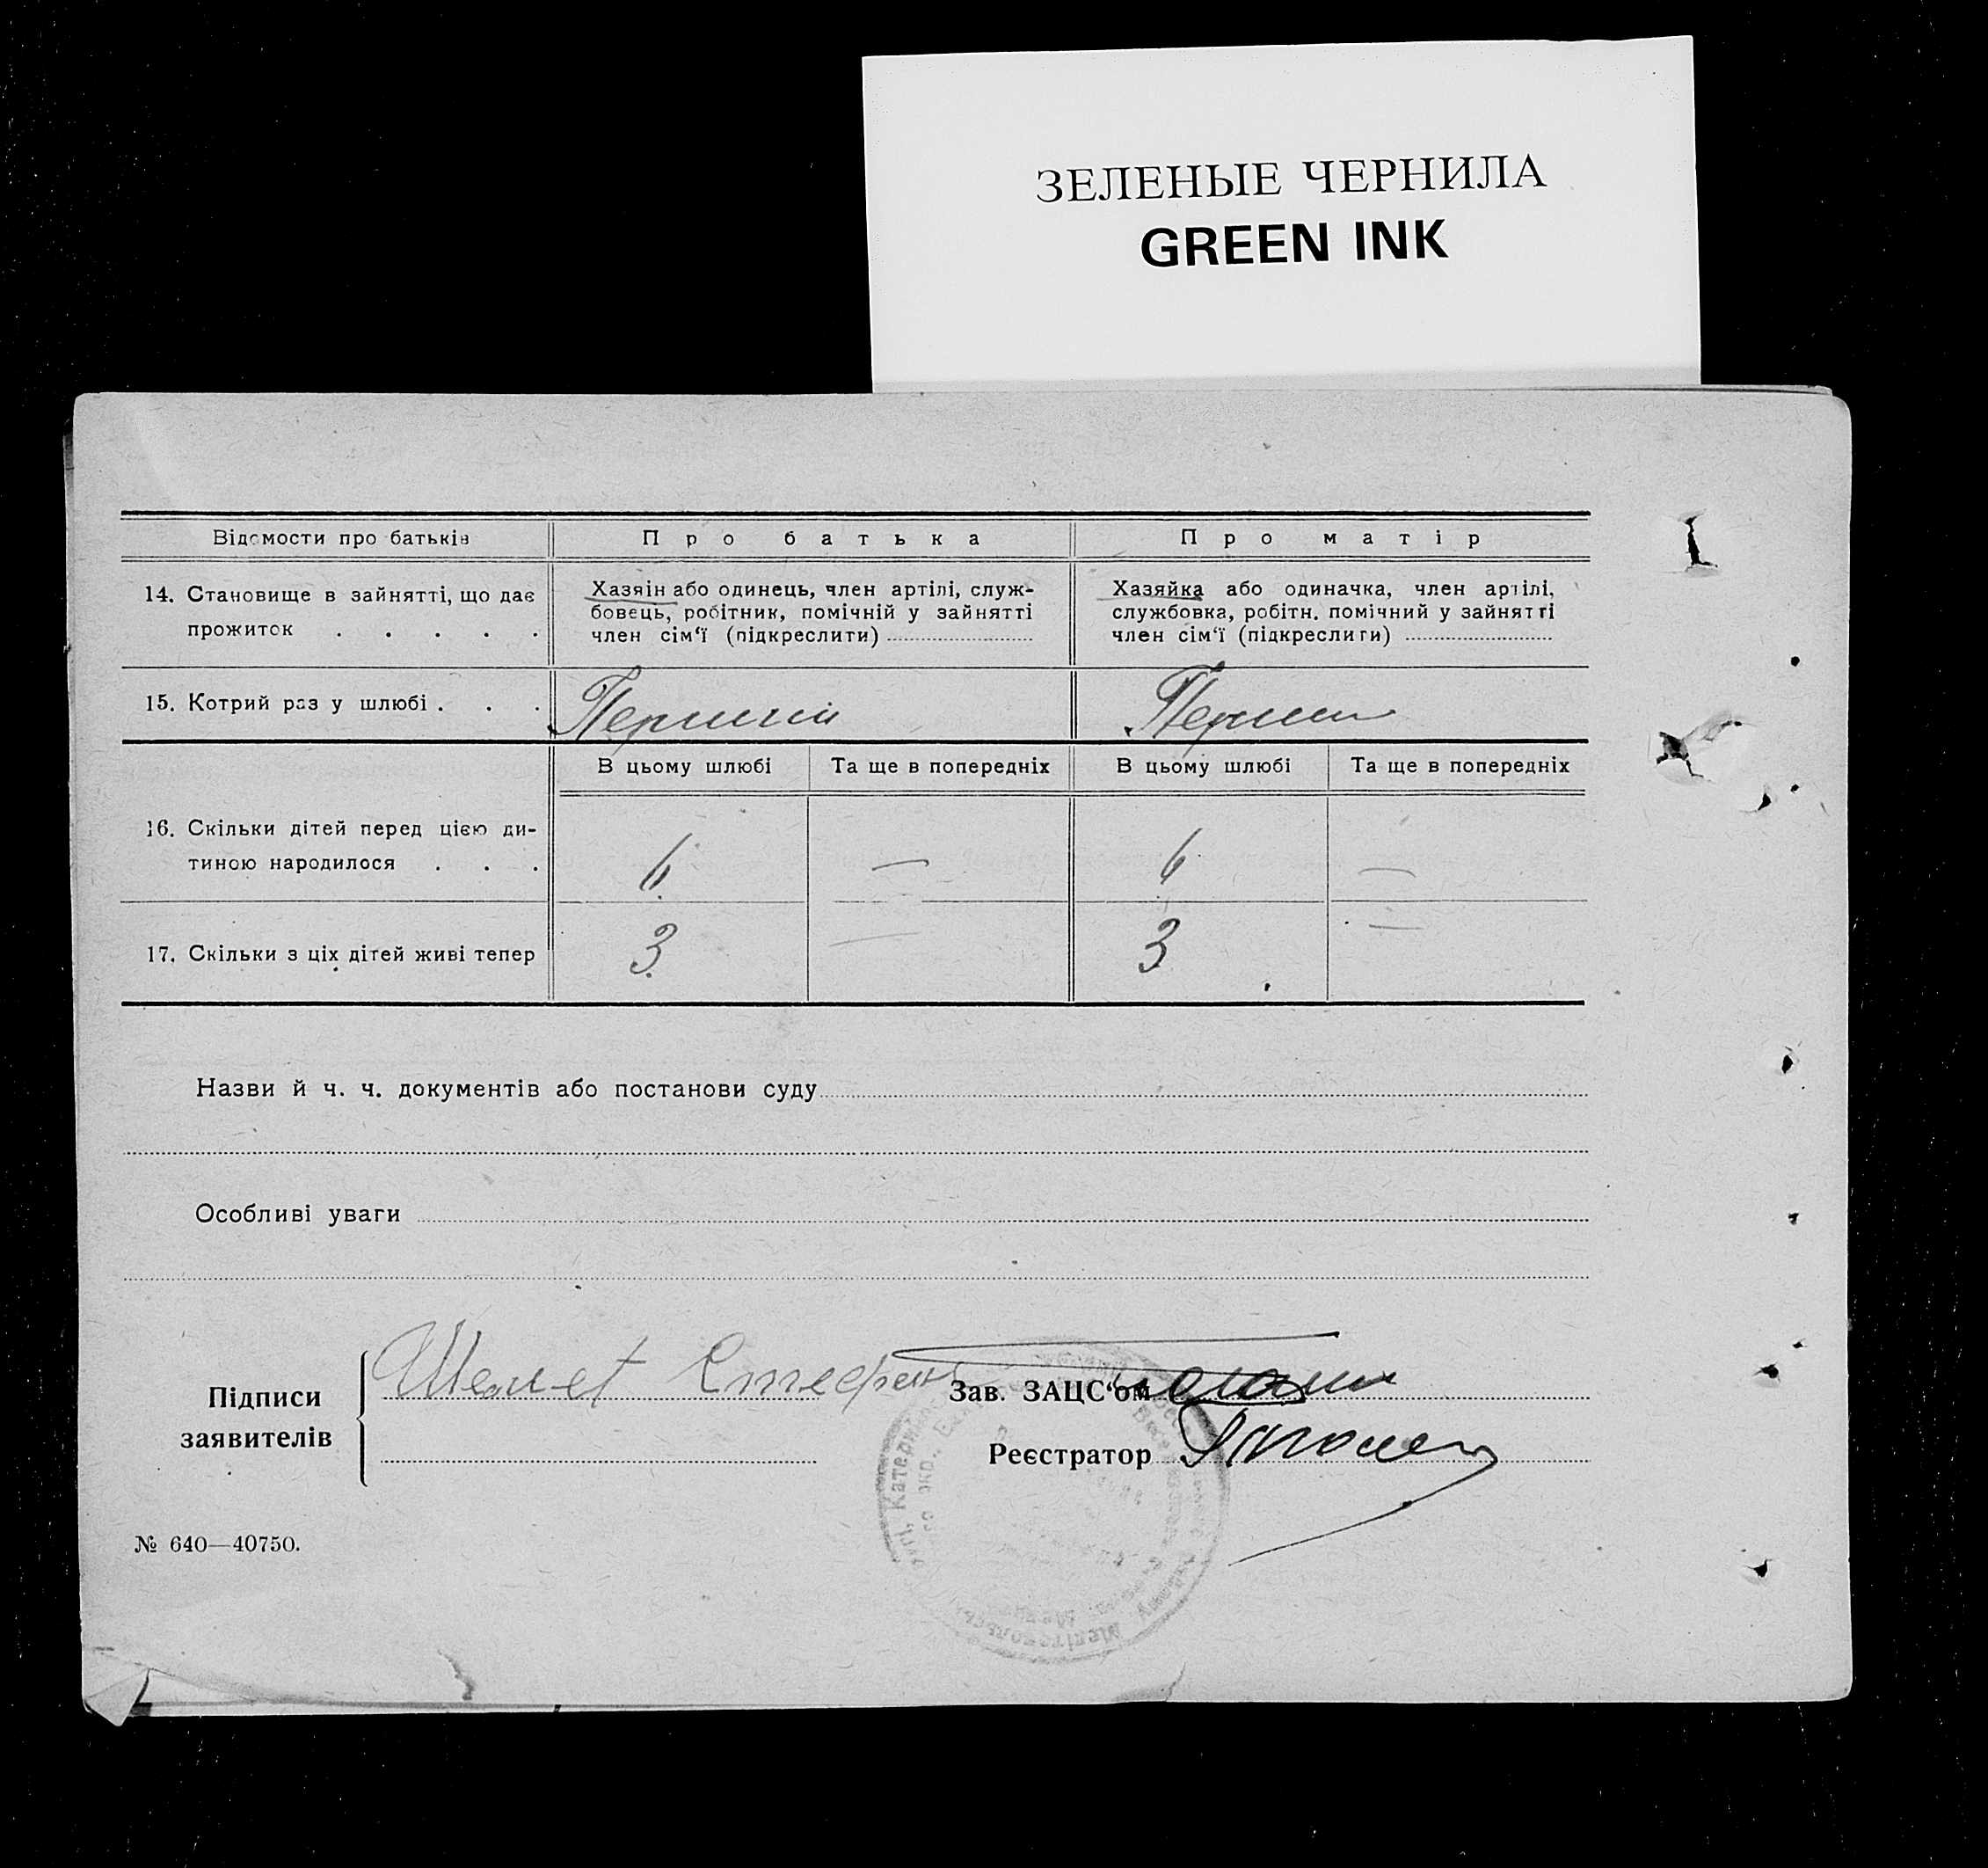 ЗЕЛЕНЫЕ ЧЕРНИЛА
GREEN INK
Відомости про батьків
Про батька
Про матір
14. Становище в зайнятті, що дає
прожиток . . . . .
Хазяін або одинець, член артілі, служ-
бовець, робітник, помічній у зайнятті
член сім‘ї (підкреслити)
Хазяйка або одиначка, член артілі,
службовка, робітн. помічний у зайнятті
член сім‘ї (підкреслити)
15. Котрий раз у шлюбі . . .
Перший
Перши
В цьому шлюбі
Та ще в попередніх
В цьому шлюбі
Та ще в попередніх
16. Скільки дітей перед цією ди-
тиною народилося . . .
6 — 6 —
17. Скільки з ціх дітей живі тепер
3 — 3 —
Назви й ч. ч. документів або постанови суду
Особливі уваги
Підписи
заявителів
Шемет
Зав. ЗАЦС‘ом
Реєстратор
№ 640—40750.